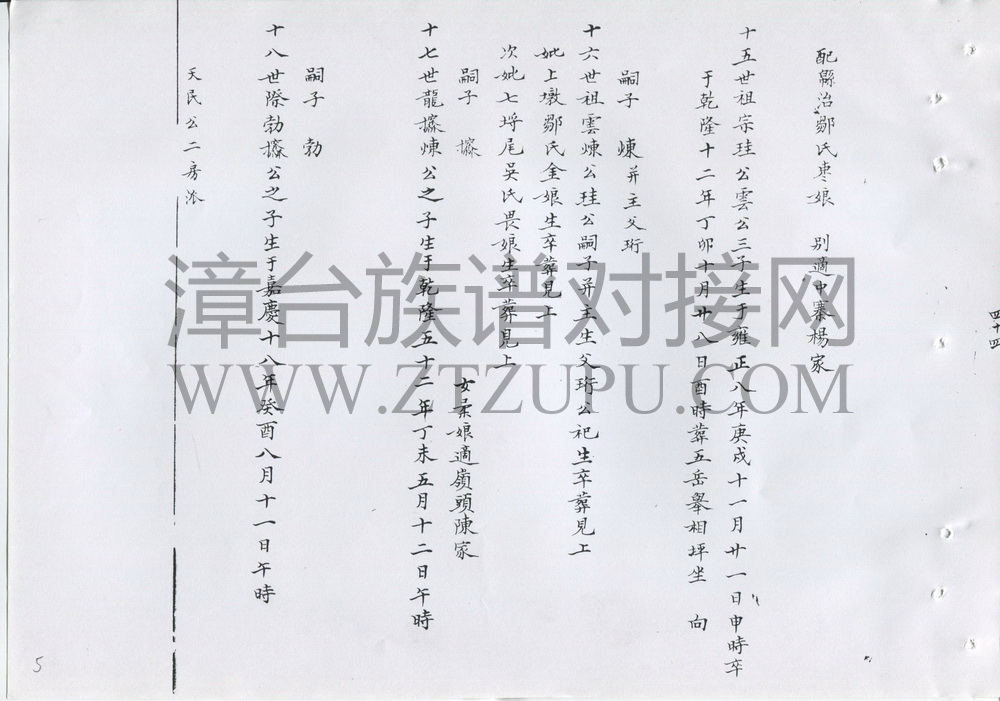 四十四
配縣治鄒氏枣娘 別適中寨楊家
十五世祖宗珪公雲公三子生于雍正八年庚戌十一月廿一日申時卒
于乾隆十二年丁卯十月廿八日酉時葬五岳舉相坪坐 向
嗣子 煉并主父珩
十六世祖雲煉公珪公嗣子并主生父珩公祀生卒葬見上
妣上墩鄒氏金娘生卒葬見上
次妣七埒尾吳氏畏娘生卒葬見上
嗣子 攃 女柔娘適嶺頭陳家
十七世龍攃煉公之子生于乾隆五十二年丁未五月十二日午時
嗣子 勃
十八世際勃攃公之子生于嘉慶十八年癸酉八月十一日午時
天民公二房派
5
漳台族谱对接网
WWW.ZTZUPU.COM